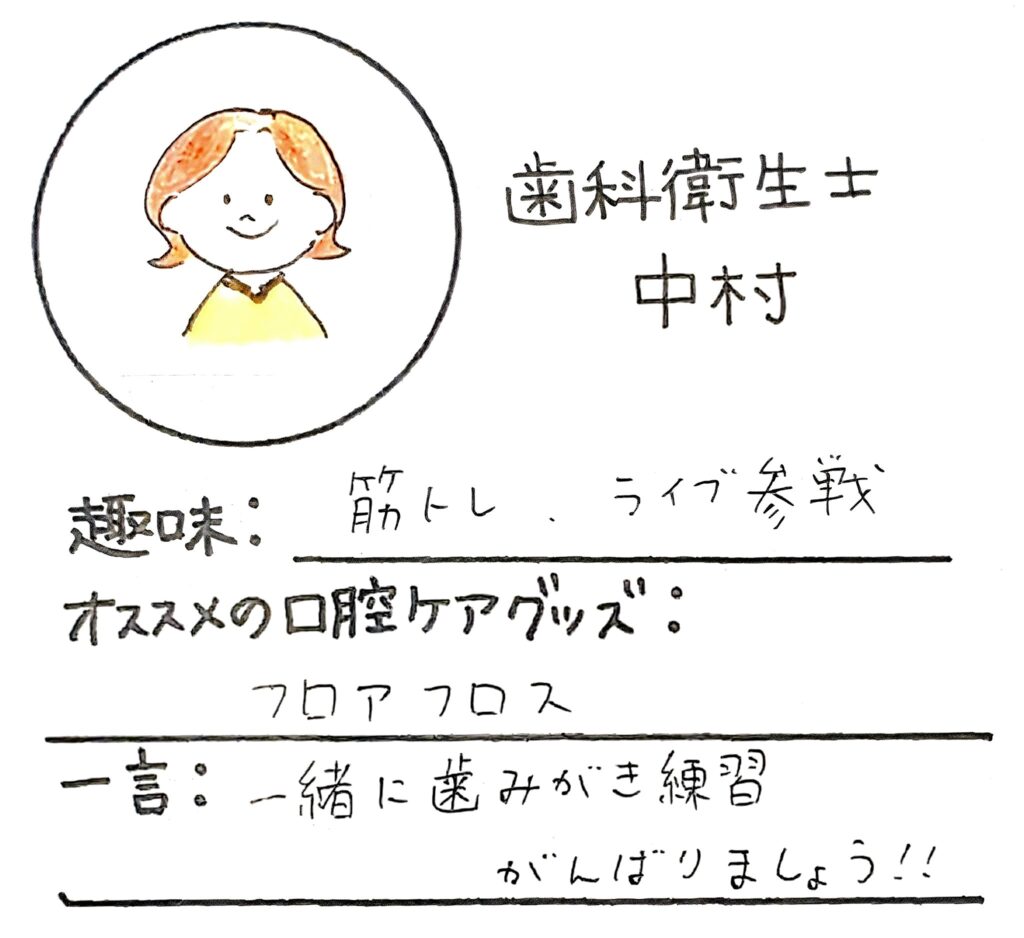 歯科衛生士
中村
趣味: 筋トレ、ライブ参戦
オススメの口腔ケアグッズ:
フロアフロス
一言: 一緒に歯みがき練習
がんばりましょう!!